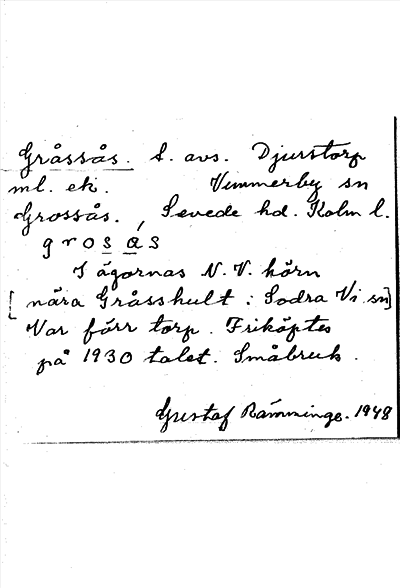 Gråssås. S. avs. Djurstorp
ml. ek. Vimmerby sn
Grossås. , Sevede hd. Kalm l.
grosas
I ägornas N.V. hörn
[nära Gråsshult i Södra Vi sn]
Var förr torp. Friköptes
på 1930 talet. Småbruk.
Gustaf Rämminge. 1948